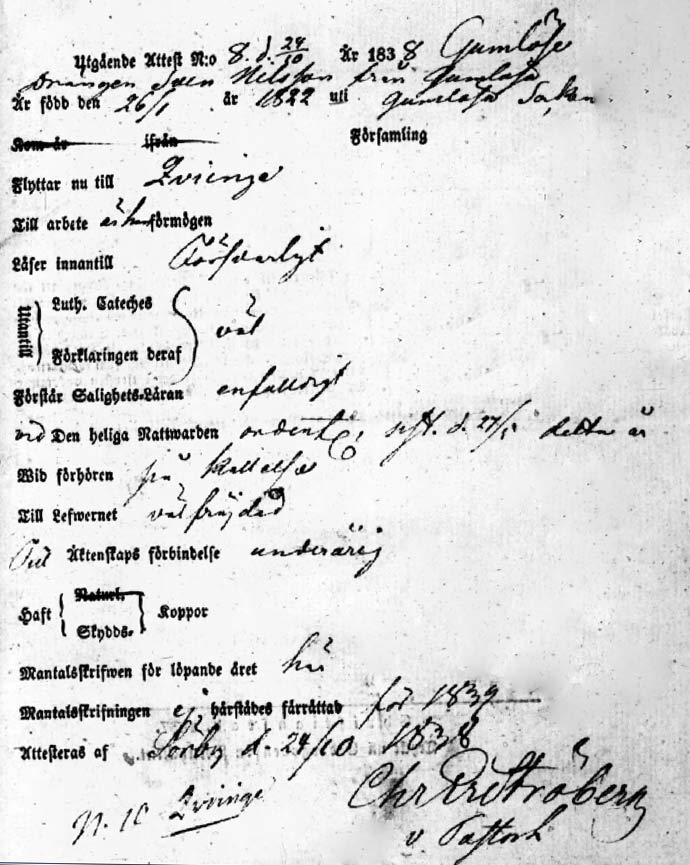 Utgående Attest N:o 8. d. 24/10 År 1838 Gumlösa
Drängen Sven Nilsson från Gumlösa
Är född den 26/1 år 1822 uti Gumlösa Sokn
Kom år ifrån Församling
Flyttar nu till Qvinge
Till arbete är han förmögen
Läser innantill försvarligt
Utantill { Luth. Cateches
Förklaringen deraf } väl
Förstår Salighets-Läran enfaldigt
Den heliga Nattwarden ordentl. sist. d. 27/5 detta år
Wid förhören på kallelse
Till Lefwernet välfräjdad
Till Äktenskaps förbindelse underårig
Haft { Naturl. Skydds- } Koppor
Mantalsskrifwen för löpande året här
Mantalsskrifningen ej härstädes förrättad för 1839
Attesteras af Sörby d. 24/10 1838
N. 10 Qvinge
v. Pastor